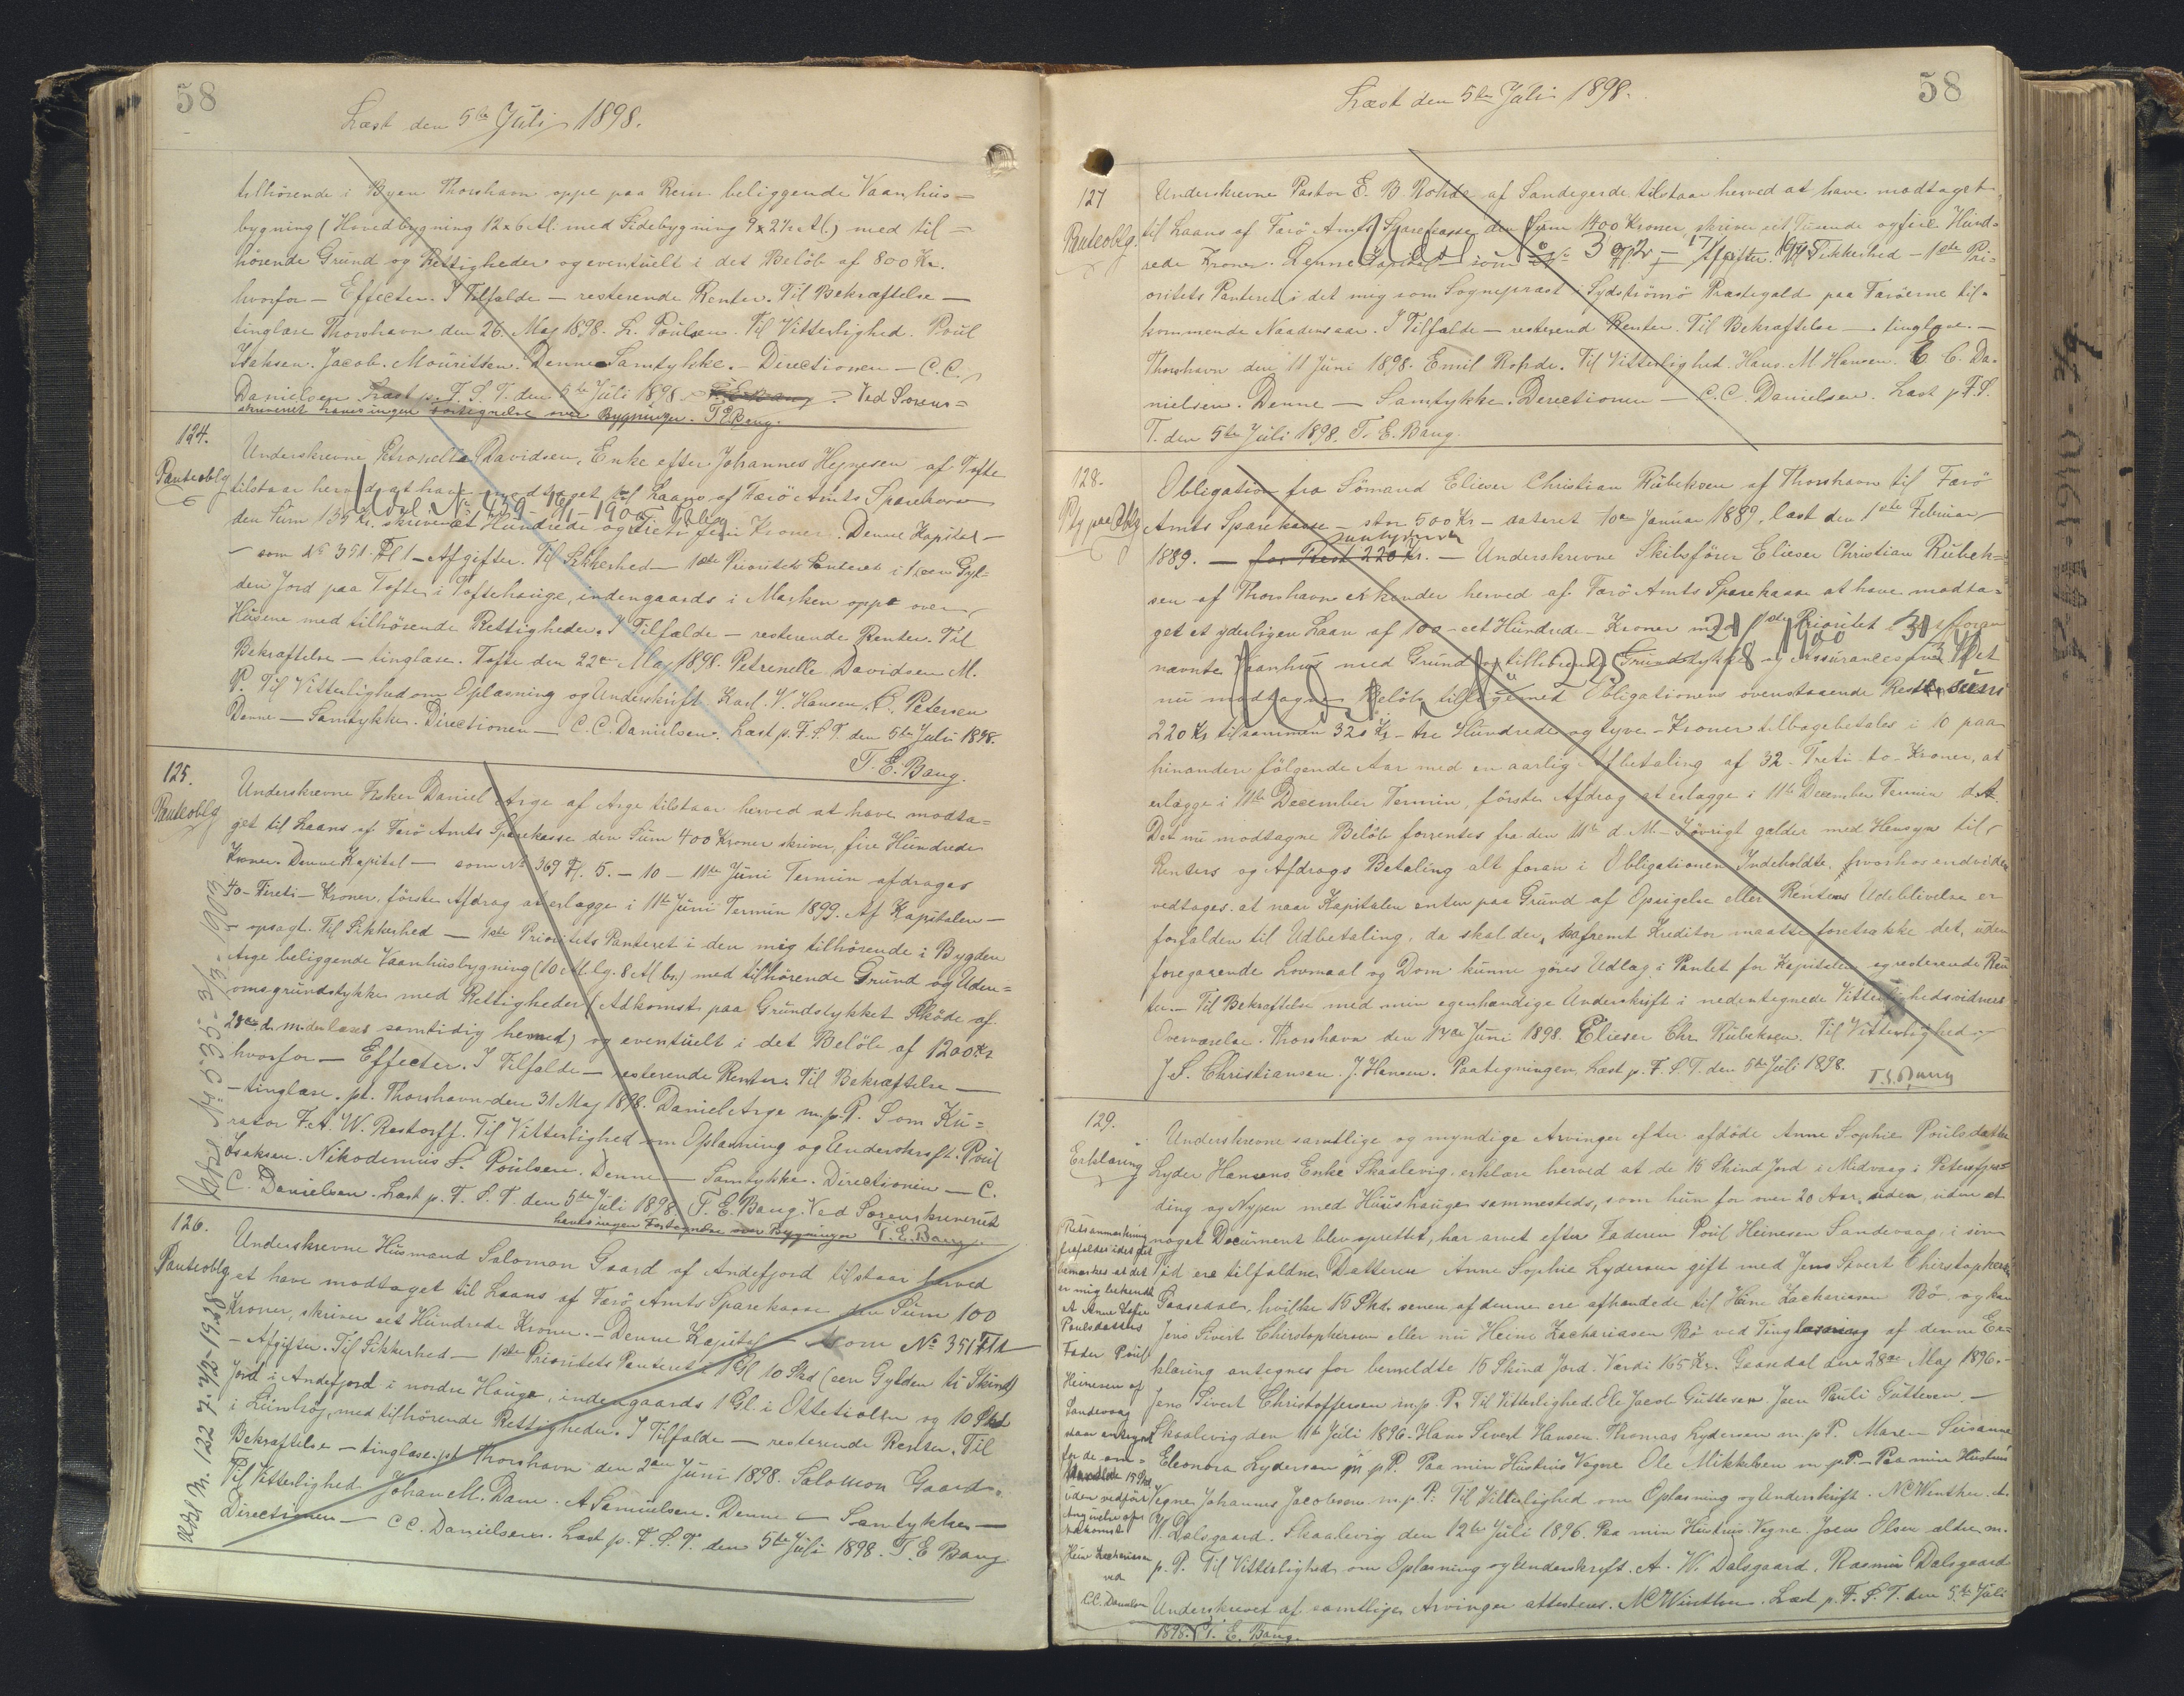 58
Læst den 5te Juli 1898.
tilhörende i Byen Thorshavn oppe paa Rein beliggende Vaanhus=
bygning (Hovedbygning 12x6 Al. med Sidebygning 9x2½ Al.) med til=
hörende Grund og Rettigheder og eventuelt i det Belöb af 800 Kr.
hvorfor — Effecter. I Tilfælde — resterende Renter. Til Bekræftelse —
tinglæse Thorshavn den 26. Maj 1898. H. Poulsen. Til Vitterlighed. Poul
Isaksen. Jacob Mouritsen. Denne Samtykke. — Directionen — C. C.
Danielsen Læst p. F. S. T. den 5te Juli 1898 T. E. Bang. Ved Sorens=
skriveriet haves ingen Fortegnelse over Bygninger. T. E. Bang.
124.
Panteoblg
Underskrevne Petronella Davidsen, Enke efter Johannes Hejnesen af Tofte
tilstaar herved at have modtaget til Laans af Færö Amts Sparekasse
Udsl. No 439 - 19/1 - 1900
den Sum 135 Kr. skriver et Hundrede og Treti fem Kroner. Denne Kapital —
— som No 351. Fl 1 — Afgifter. Til Sikkerhed — 1ste Prioritets Panteret i 1 een Gyl=
den Jord paa Tofte i Toftehauge, indengaards i Marken oppe over
Husene med tilhörende Rettigheder. I Tilfælde — resterende Renter. Til
Bekræftelse — tinglæse. Tofte den 22de Maj 1898. Petrenelle Davidsen M.
P. Til Vitterlighed om Oplæsning og Underskrift. Karl. V. Hansen. C. Petersen
Denne — Samtykke. Directionen — C. C. Danielsen. Læst p. F. S. T. den 5te Juli 1898.
T. E. Bang.
125.
Panteoblg
Underskrevne Fisker Daniel Arge af Arge tilstaar herved at have modta=
get til Laans af Færö Amts Sparekasse den Sum 400 Kroner skriver, fire Hundrede
Kroner. Denne Kapital — som No 369 Fl. 5. — 10 — 11te Juni Termin afdrages
40 – Fireti – Kroner, förste Afdrag at erlægge i 11te Juni Termin 1899. Af Kapitalen —
— opsagt. Til Sikkerhed — 1ste Prioritets Panteret i den mig tilhörende i Bygden
Arge beliggende Vaanhusbygning (10 Al. lg. 8 Al. br.) med tilhörende Grund og Uden=
omsgrundstykke med Rettigheder (Adkomst paa Grundstykket Sköde af
28de d. M. der læses samtidig hermed) og eventuelt i det Belöb af 1200 Kr
hvorfor — Effecter. I Tilfælde — resterende Renter. Til Bekræftelse —
— tinglæse. pt. Thorshavn den 31 Maj 1898. Daniel Arge m. p. P. Som Ku=
rator F. A. W. Restorff. Til Vitterlighed om Oplæsning og Underskrift. Poul
Isaksen. Nikodemus S. Poulsen. Denne — Samtykke. Directionen — C.
C. Danielsen. Læst p. F. S. T. den 5te Juli 1898. T. E. Bang. Ved Sorenskriveriet
haves ingen Fortegnelse over Bygninger T. E. Bang.
126.
Panteoblg
Udsl Nr. 122 7-4/2-1938
Underskrevne Husmand Salomon Gaard af Andefjord tilstaar herved
at have modtaget til Laans af Færö Amts Sparekasse den Sum 100
Kroner, skriver eet Hundrede Kroner. — Denne Kapital — som No 351 Fl 1
— Afgifter. Til Sikkerhed — 1ste Prioritets Panteret i 1 Gl 10 Skd (een Gylden ti Skind)
Jord i Andefjord i nordre Hauge, indengaards 1 Gl. i Ottetioltu og 10 Skd
i Liinhöj, med tilhörende Rettigheder. I Tilfælde — resterende Renter. Til
Bekræftelse — tinglæse. pt Thorshavn den 2den Juni 1898. Salomon Gaard.
Til Vitterlighed Johan M. Dam. A Samuelsen. Denne — Samtykke —
Directionen — C C. Danielsen. Læst p. F. S. T. den 5te Juli 1898. T. E Bang
58
Læst den 5te Juli 1898.
127
Panteoblg.
Underskrevne Pastor E. B. Rohde af Sandegerde tilstaar herved at have modtaget
til Laans af Færö Amts Sparekasse den Sum 1400 Kroner, skriver eet Tusende og fire Hund=
rede Kroner. Denne Kapital — som — Afgifter. Til Sikkerhed — 1ste Pri=
oritets Panteret i det mig som Sognepræst i Sydströmö Præstegæld paa Færöerne til=
kommende Naadensaar. I Tilfælde — resterend Renter. Til Bekræftelse — tinglæse. —
Thorshavn den 11 Juni 1898. Emil Rohde. Til Vitterlighed. Hans. M Hansen. C C. Da=
nielsen. Denne — Samtykke. Directionen — C. C. Danielsen. Læst p F. S.
T. den 5te Juli 1898. T. E. Bang.
128.
Ptg paa Oblg
Obligation fra Sömand Elieser Christian Rubeksen af Thorshavn til Færö
Amts Sparekasse — stor 500 Kr — dateret 10de Januar 1889, læst den 1ste Februar
1889. — for Rest 220 Kr. — Underskrevne Skibsförer Elieser Christian Rubek=
sen af Thorshavn erkender herved af Færö Amts Sparekasse at have modta=
get et yderligere Laan af 100 – eet Hundrede – Kroner mod 1ste Prioritet i
nævnte Vaanhus med Grund og tilhörende Grundstykke og Assurancesum. Det
nu modtagne Belöb tilligemed Obligationens ovenstaaende Restsum
220 Kr tilsammen 320 Kr – tre Hundrede og tyve – Kroner tilbagebetales i 10 paa
hinanden fölgende Aar med en aarlig Afbetaling af 32 – Treti to – Kroner, at
erlægge i 11te December Termin, förste Afdrag at erlægge i 11te December Termin d. A.
Det nu modtagne Belöb forrentes fra den 11te d. M. – Iövrigt gælder med Hensyn til
Renters og Afdrags Betaling alt foran i Obligationen Indeholdte, hvorhos endvidere
vedtages, at naar Kapitalen enten paa Grund af Opsigelse eller Rentens Udeblivelse er
forfalden til Udbetaling, da skal der, saafremt Kreditor maatte foretrække det, uden
foregaaende Lovmaal og Dom kunne göres Udlæg i Pantet for Kapitalen og resterende Ren
ter. – Til Bekræftelse med min egenhændige Underskrift i nedentegnede Vitterlighedsvidners
Overværelse. Thorshavn den 17de Juni 1898. Elieser Chr. Rubeksen. Til Vitterlighed
J. S. Christiansen. J. Hansen. Paategningen, Læst p. F. S. T. den 5te Juli 1898. T. E. Bang
129.
Erklæring
Underskrevne samtlige og myndige Arvinger efter afdöde Anne Sophie Poulsdatter
Lyder Hansens Enke Skaalevig erklære herved at de 15 Skind Jord i Midvaag i Petersfjer=
ding og Nypen med Huushauge sammesteds, som hun for over 20 Aar siden, uden at
noget Document blev oprettet, har arvet efter Faderen Poul Heinesen Sandevaag, i sin
Tid ere tilfaldne Datteren Anne Sophie Lydersen gift med Jens Sivert Christophersen
Gaasedal, hvilke 15 Skd. senere af denne ere afhændede til Heine Zachariasen Bö og kan
Jens Sivert Christophersen eller nu Heine Zachariasen Bö ved Tinglæsning af denne Er=
klæring antegnes for bemeldte 15 Skind Jord. Værdi 165 Kr. Gaasdal den 28de Maj 1896. –
Jens Sivert Christoffersen m. p. P. Til Vitterlighed. Ole Jacob Guttesen. Joen Pauli Guttesen. —
Skaalevig den 11te Juli 1896. Hans Sivert Hansen. Thomas Lydersen m. p. P. Maren Susanne
Eleonora Lydersen m p P. Paa min Hustrus Vegne Ole Mikkelsen m p. P. – Paa min Hustrus
Vegne Johannes Jacobsen m. p. P. Til Vitterlighed om Oplæsning og Underskrift. N C Winther. A.
W. Dalsgaard. Skaalevig den 12te Juli 1896. Paa min Hustrus Vegne. Joen Olsen ældre m.
p. P. Til Vitterlighed om Oplæsning og Underskrift. A. W. Dalsgaard. Rasmus Dalsgaard
Underskrevet af samtlige Arvinger attesteres. N C Winther. Læst p. F. S. T. den 5te Juli
1898. T. E. Bang.
Retsanmærkning
frafaldes idet det
bemærkes at det
er mig bekendt
At Anne Sofie
Poulsdatters
Fader Poul
Heinesen af
Sandevaag
staar antegnet
for de om=
handlede 15 Skd
uden vedföjet
Angivelse af
Adkomst
Hein Zachariasen
ved
C. C. Danielsen